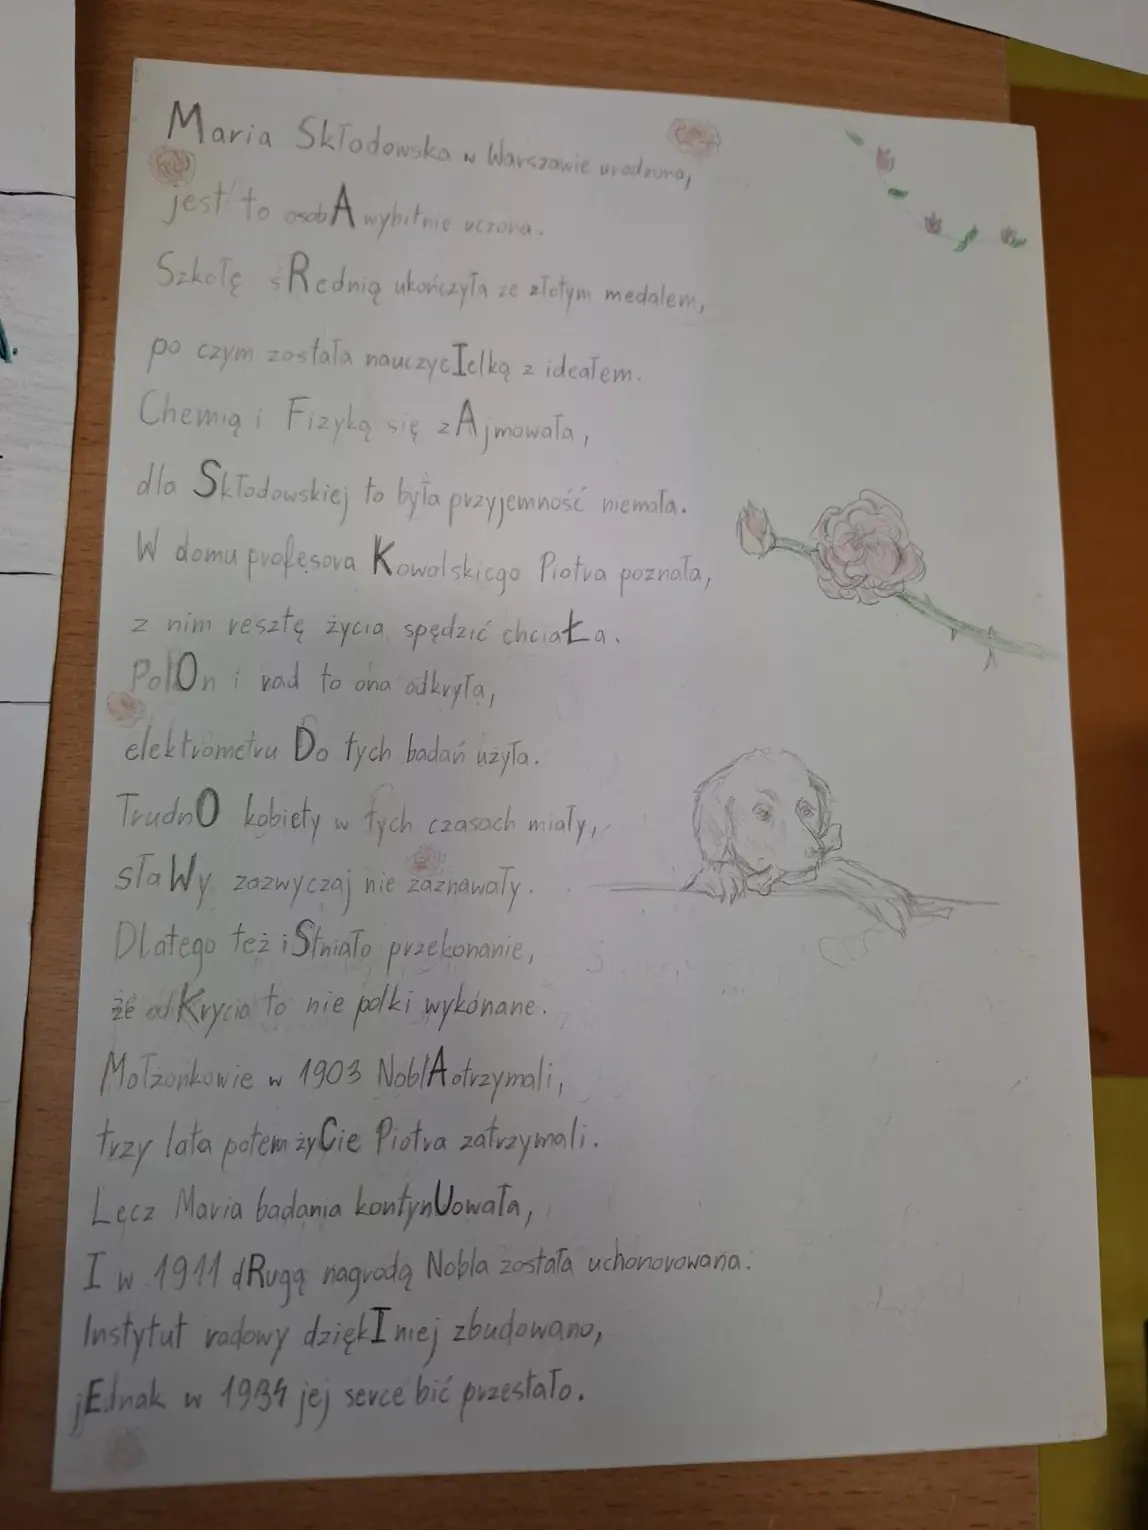 Maria Skłodowska w Warszawie urodzona,
jest to osobA wybitnie uczona.
Szkołę śRednią ukończyła ze złotym medalem,
po czym została nauczycIelką z ideałem.
Chemią i Fizyką się zAjmowała,
dla Skłodowskiej to była przyjemność niemała.
W domu profesora Kowalskiego Piotra poznała,
z nim resztę życia spędzić chciaŁa.
PolOn i rad to ona odkryła,
elektrometru Do tych badań użyła.
TrudnO kobiety w tych czasach miały,
słaWy zazwyczaj nie zaznawały.
Dlatego też iStniało przekonanie,
że odKrycia to nie polki wykonane.
Małżonkowie w 1903 NoblA otrzymali,
trzy lata potem żyCie Piotra zatrzymali.
Lecz Maria badania kontynUowała,
I w 1911 dRugą nagrodą Nobla została uchonorowana.
Instytut radowy dziękI niej zbudowano,
jEdnak w 1934 jej serce bić przestało.